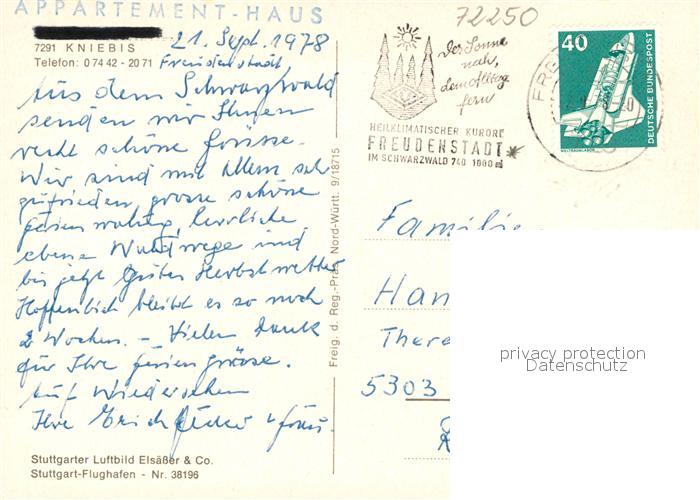 APPARTEMENT-HAUS
7291 KNIEBIS
Telefon: 0 74 42 - 20 71
21. Sept. 1978
Freudenstadt,
Aus dem Schwarzwald
senden wir Ihnen
recht schöne Grüsse.
Wir sind mit Allem sehr
zufrieden, grosse schöne
Ferienwohng, herrliche
ebene Waldwege und
bis jetzt gutes Herbstwetter
Hoffentlich bleibt es so noch
2 Wochen. – Vielen Dank
für Ihre Feriengrüsse.
Auf Wiedersehen
Ihre Erich
Stuttgarter Luftbild Elsäßer & Co.
Stuttgart-Flughafen - Nr. 38196
Freig. d. Reg.-Präs. Nord-Württ. 9/18715
72250
Der Sonne
nah,
dem Alltag
fern
HEILKLIMATISCHER KURORT
FREUDENSTADT
IM SCHWARZWALD 740 1000 m
40
DEUTSCHE BUNDESPOST
WELTRAUMLABOR
Familie
Han
There
5303
privacy protection
Datenschutz